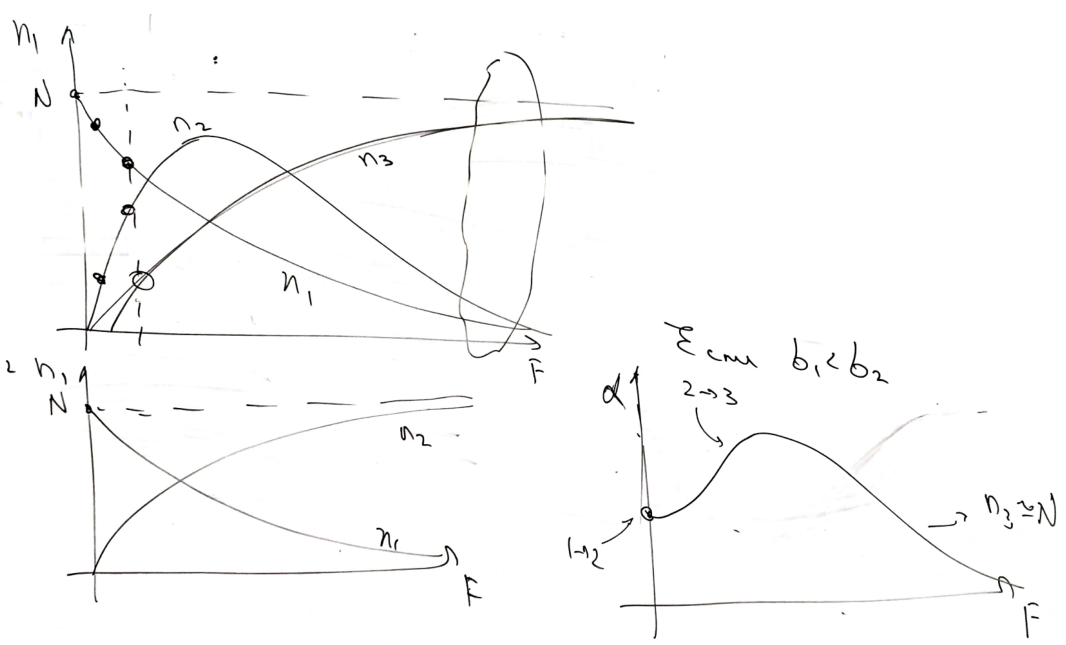 n₁
N
n₂
n₃
n₁
F
2 n₁
N
n₂
n₁
F
Если b₁<b₂
α
2→3
1→2
n₃≃N
F